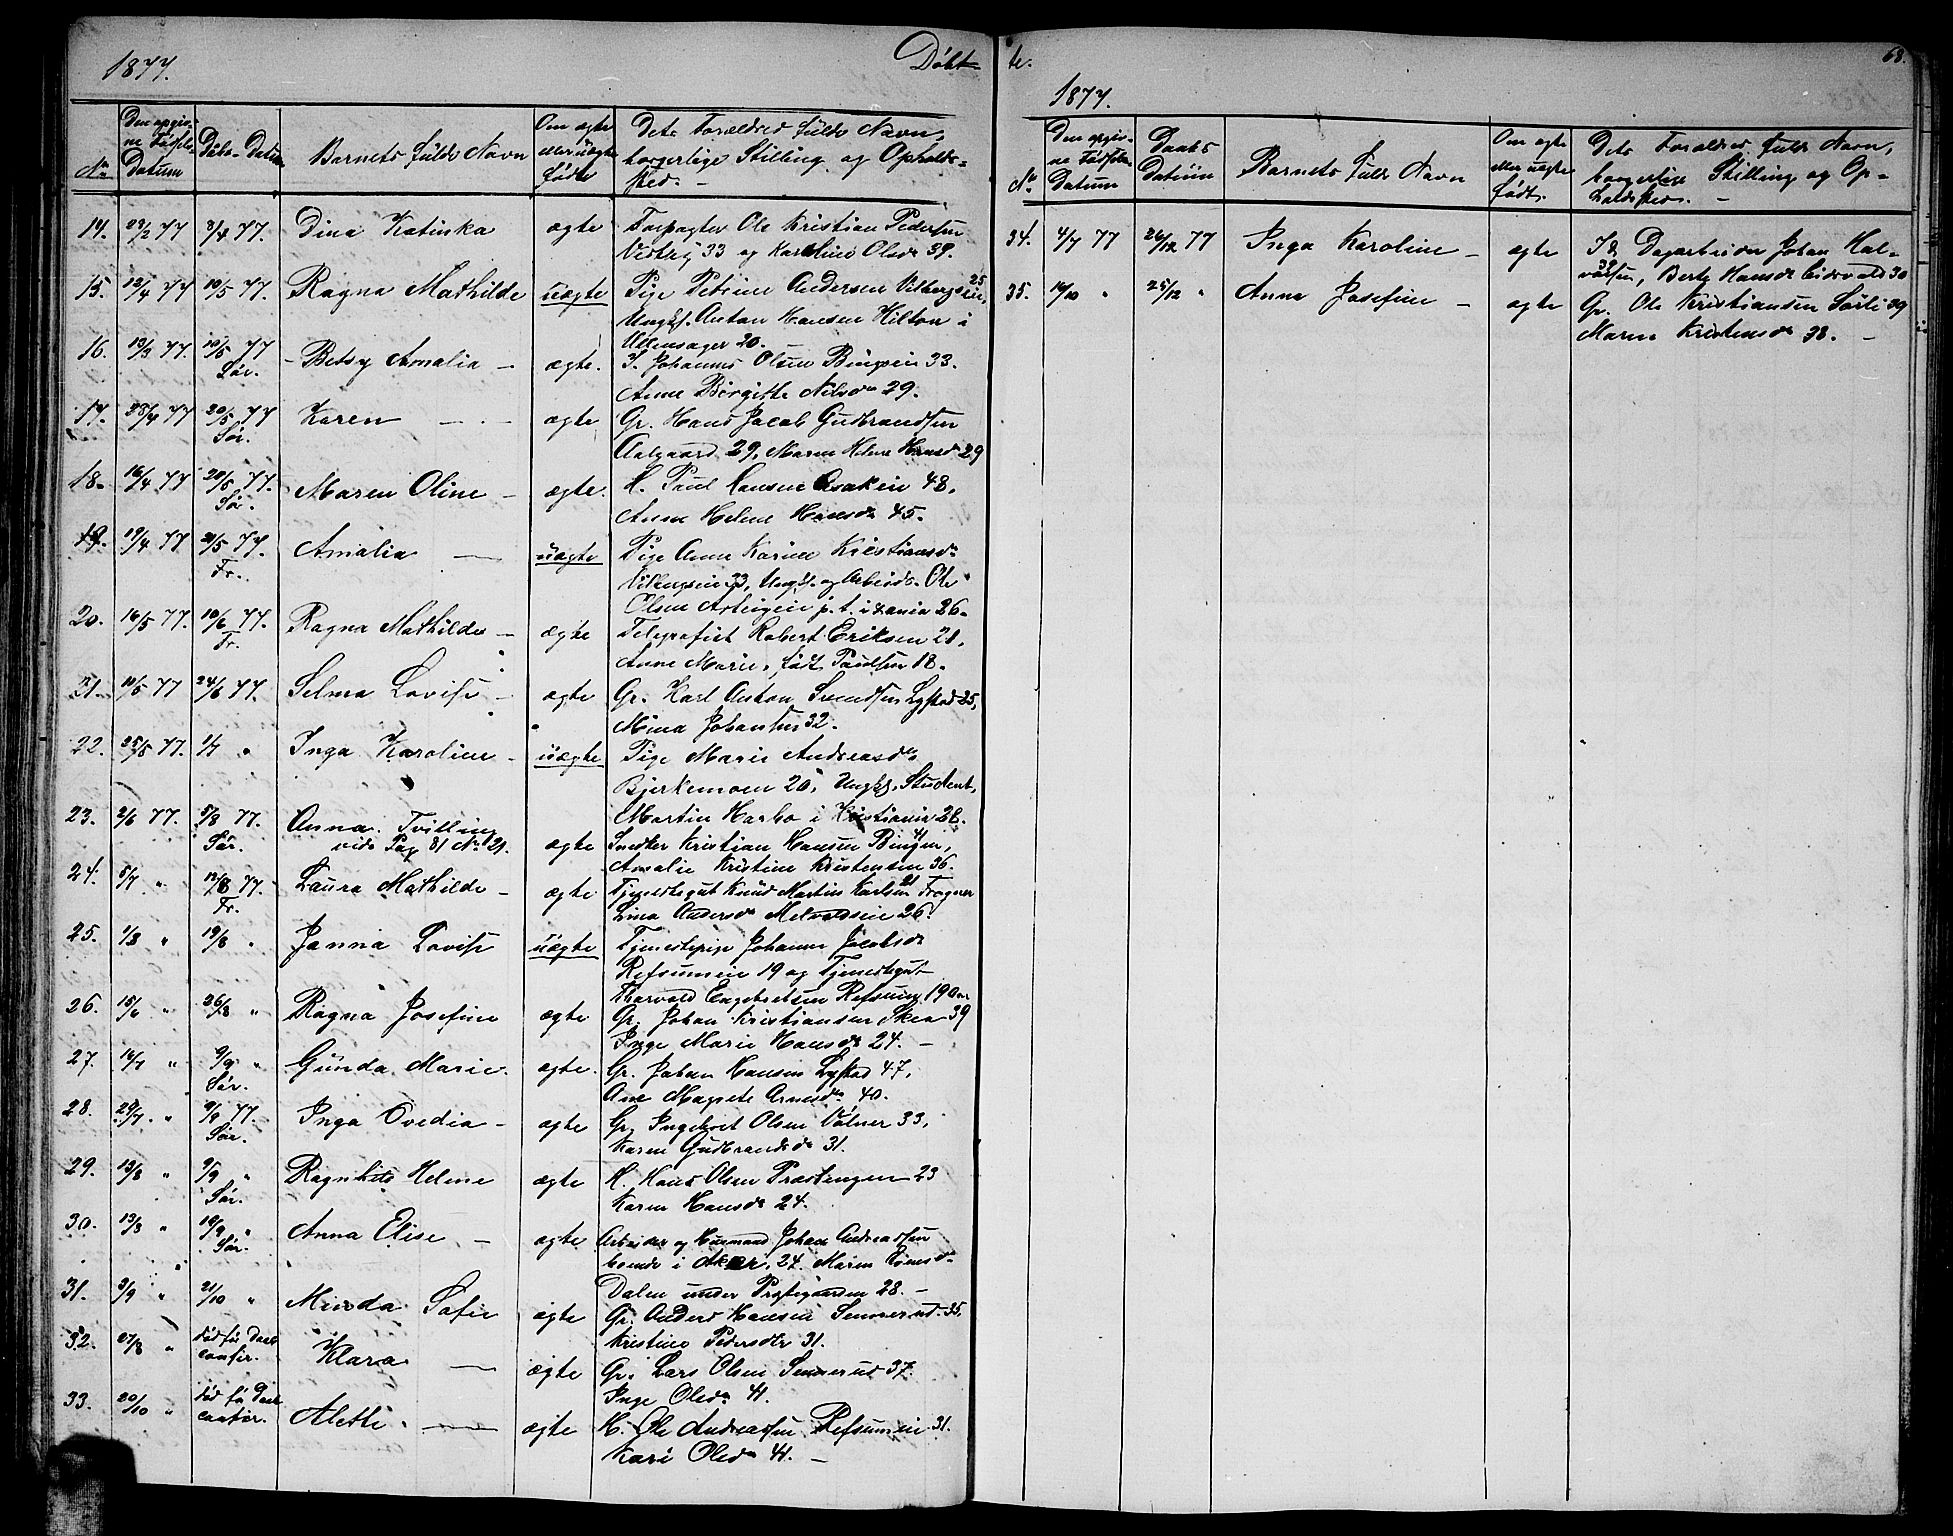 1877.
Døbt
No
Den opgivne Fødsels Datum
Daabs-Datum
Barnets fulde Navn
Om ægte eller uægte Født
Dets Forældres fulde Navn, borgerlige Stilling og Opholdssted. –
14. 23/2 77 3/4 77. Dina Katinka ægte Forpagter Ole Kristian Pedersen
33 og Karoline Olsdr 39.
15. 12/4 77 10/5 77. Ragna Mathilde uægte Pige Petrine Andersen 25
Ungkf. Anton Hansen Hilton i
Ullensager 20.
16. 13/3 77. 10/5 77 Sør. – Betsy Amalia – ægte. S. Johannes Olsen Bingen 33.
Anne Birgitte Nilsdr 29.
17. 28/4 77 20/5 77 Sør. Karen – . – ægte Gr. Hans Jacob Gudbrandsen
Aalgaard 29, Maren Helene Hansdr 29
18. 16/4 77 20/5 77. Sør. Maren Oline – ægte. H. Paul Hansen 48,
Anne Helene Hansdr 45.
19. 19/4 77 21/5 77. Fr. Amalia – uægte Pige Anne Karine Kristiansdr
33, Ungkf. og Arbeids. Ole
Olsen p. t. i Xania 26.
20. 16/5 77. 10/6 77. Fr. Ragna Mathilde – ægte Telegrafist Robert Eriksen 21,
Anne Marie, født Paulsen 18.
21. 10/5 77 24/6 77. Selma Lovise – ægte Gr. Karl Anton Svendsen Lystad 25,
Mina Johansen 32.
22. 25/5 77. 1/7 " Inga Karoline – uægte Pige Marie Andreasdr
Bjerkemoen 20, Ungkf. Student,
Martin Harbo i Kristiania 28.
23. 2/6 77. 5/8 77. Sør. Anna. Tvilling
vide Pag 81 No 21. ægte Snedker Kristian Hansen Bingen, 41
Amalie Kristine Kristensen 36.
24. 5/7 " 12/8 77. Fr. Laura Mathilde – ægte Tjenestegut Knud Martin Karlsen 21 Frogner
Lina Andersdr 26.
25. 1/8 " 19/8 " Janna Lovise uægte Tjenestepige Johanne Jacobsdr
Refsumeie 19 og Tjenestegut
Tharvald Engebretsen Refsum, 19
26. 15/6 " 26/8 " Ragna Josefine ægte Gr. Johan Kristiansen Skea 39
Inge Marie Hansdr 24. –
27. 14/7 " 9/9 " Sør. Gunda Marie. ægte. Gr. Johan Hansen Lystad 47,
Ane Magrete Arnesdr 40.
28. 29/7. " 9/9 77. Sør. Inga Ovedia – ægte Gr. Ingebret Olsen Vølner 33,
Karen Gudbrandsdr 31.
29. 13/8 " 9/9 " Sør. Ragnhild Helene ægte H. Hans Olsen Præstengen 23
Karen Hansdr 24.
30. 13/8 " 16/9 " Sør. Anna Elise – ægte Arbeider og Husmand Johan Andreassen
boende i Aker, 24. Maren
Dalen under 28. –
31. 3/9 " 21/10 " Minda Sofie ægte Gr. Anders Hansen Sennerud 35,
Kristine Pedersdtr 31.
32. 27/8 " død før Daab confir. Klara – ægte Gr. Lars Olsen Sennerud 37.
Inge Olsdr 41.
33. 20/10 " død før Daab confir. Alette – ægte H. Ole Andreassen Refsumeie 31.
Kari Olsdr 41. –
te.
68.
1877.
No
Den opgivne Fødsels Datum
Daabs Datum
Barnets fulde Navn
Om ægte eller uægte født.
Dets Forældres fulde Navn, borgerlige Stilling og Opholdssted. –
34. 4/7 77 26/12 77 Inga Karoline – ægte Dagarbeider Johan Halvorsen, 39
Berte Hansdr Eidsvold 30
35. 14/10 " 25/12 " Anna Josefine – ægte Gr. Ole Kristiansen Sørli 39
Maren Kristensdr 38. –